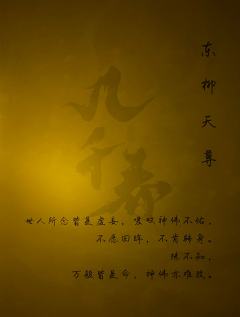 东柳天尊
九千寿
世人所念皆是虚妄，嗟叹神佛不佑，
不愿回眸，不肯转身。
殊不知，
万般皆是命，神佛亦难救。